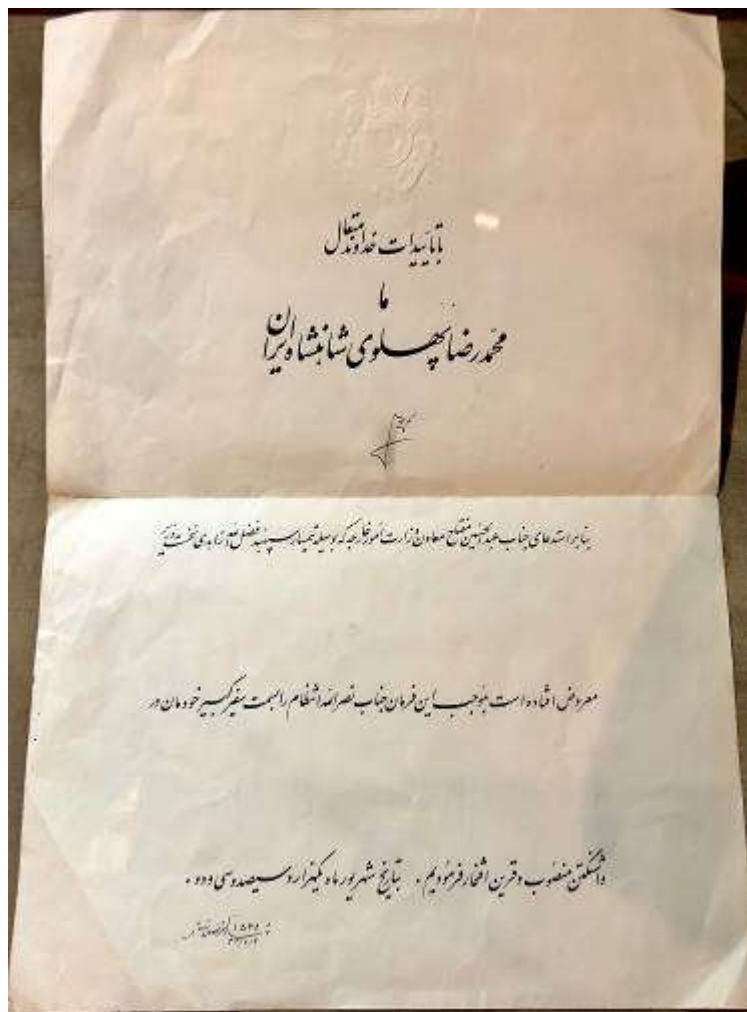 با تأییدات خداوند متعال
ما
محمد رضا پهلوی شاهنشاه ایران
بنا بر استدعای جناب عبدالحسین مفتاح معاون وزارت امور خارجه که بوسیله تیمسار سپهبد فضل الله زاهدی نخست وزیر
معروض افتاده است بموجب این فرمان جناب نصرالله انتظام را بسمت سفیر کبیر خودمان در
واشنگتن منصوب و قرین افتخار فرمودیم . بتاریخ شهریور ماه یکهزار و سیصد و سی و دو .